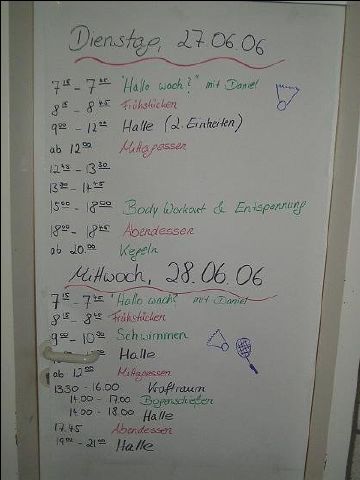 Dienstag, 27.06.06
7¹⁵ - 7⁴⁵ "Hallo wach?" mit Daniel
8¹⁵ - 8⁴⁵ Frühstücken
9⁰⁰ - 12⁰⁰ Halle (2. Einheiten)
ab 12⁰⁰ Mittagessen
12⁴⁵ - 13³⁰
13³⁰ - 14⁴⁵
15⁰⁰ - 18⁰⁰ Body Workout & Entspannung
18⁰⁰ - 18⁴⁵ Abendessen
ab 20.00 Kegeln
Mittwoch, 28.06.06
7¹⁵ - 7⁴⁵ "Hallo wach?" mit Daniel
8¹⁵ - 8⁴⁵ Frühstücken
9⁰⁰ - 10³⁰ Schwimmen
Halle
ab 12⁰⁰ Mittagessen
13.30 - 16.00 Kraftraum
14.00 - 17.00 Bogenschießen
14.00 - 18.00 Halle
17.45 Abendessen
19⁰⁰ - 21⁰⁰ Halle